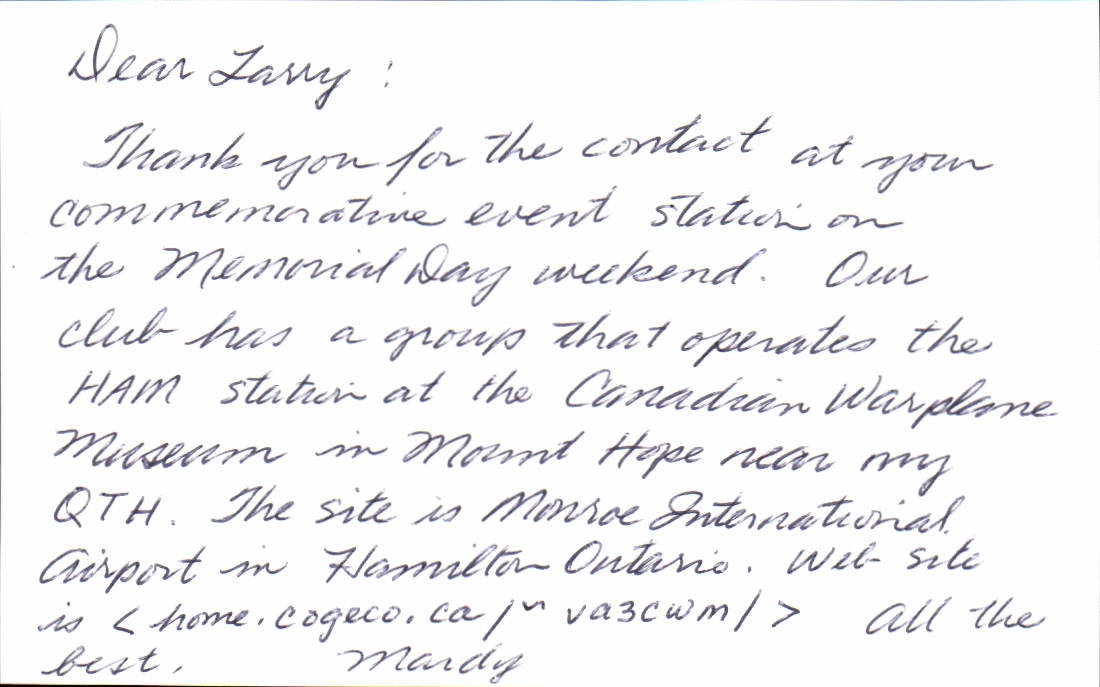 Dear Larry :
Thank you for the contact at your
commemorative event station on
the Memorial Day weekend. Our
club has a group that operates the
HAM station at the Canadian Warplane
Museum in Mount Hope near my
QTH. The site is Monroe International
Airport in Hamilton Ontario. Web site
is <home.cogeco.ca/~va3cwm/> All the
best, Mardy